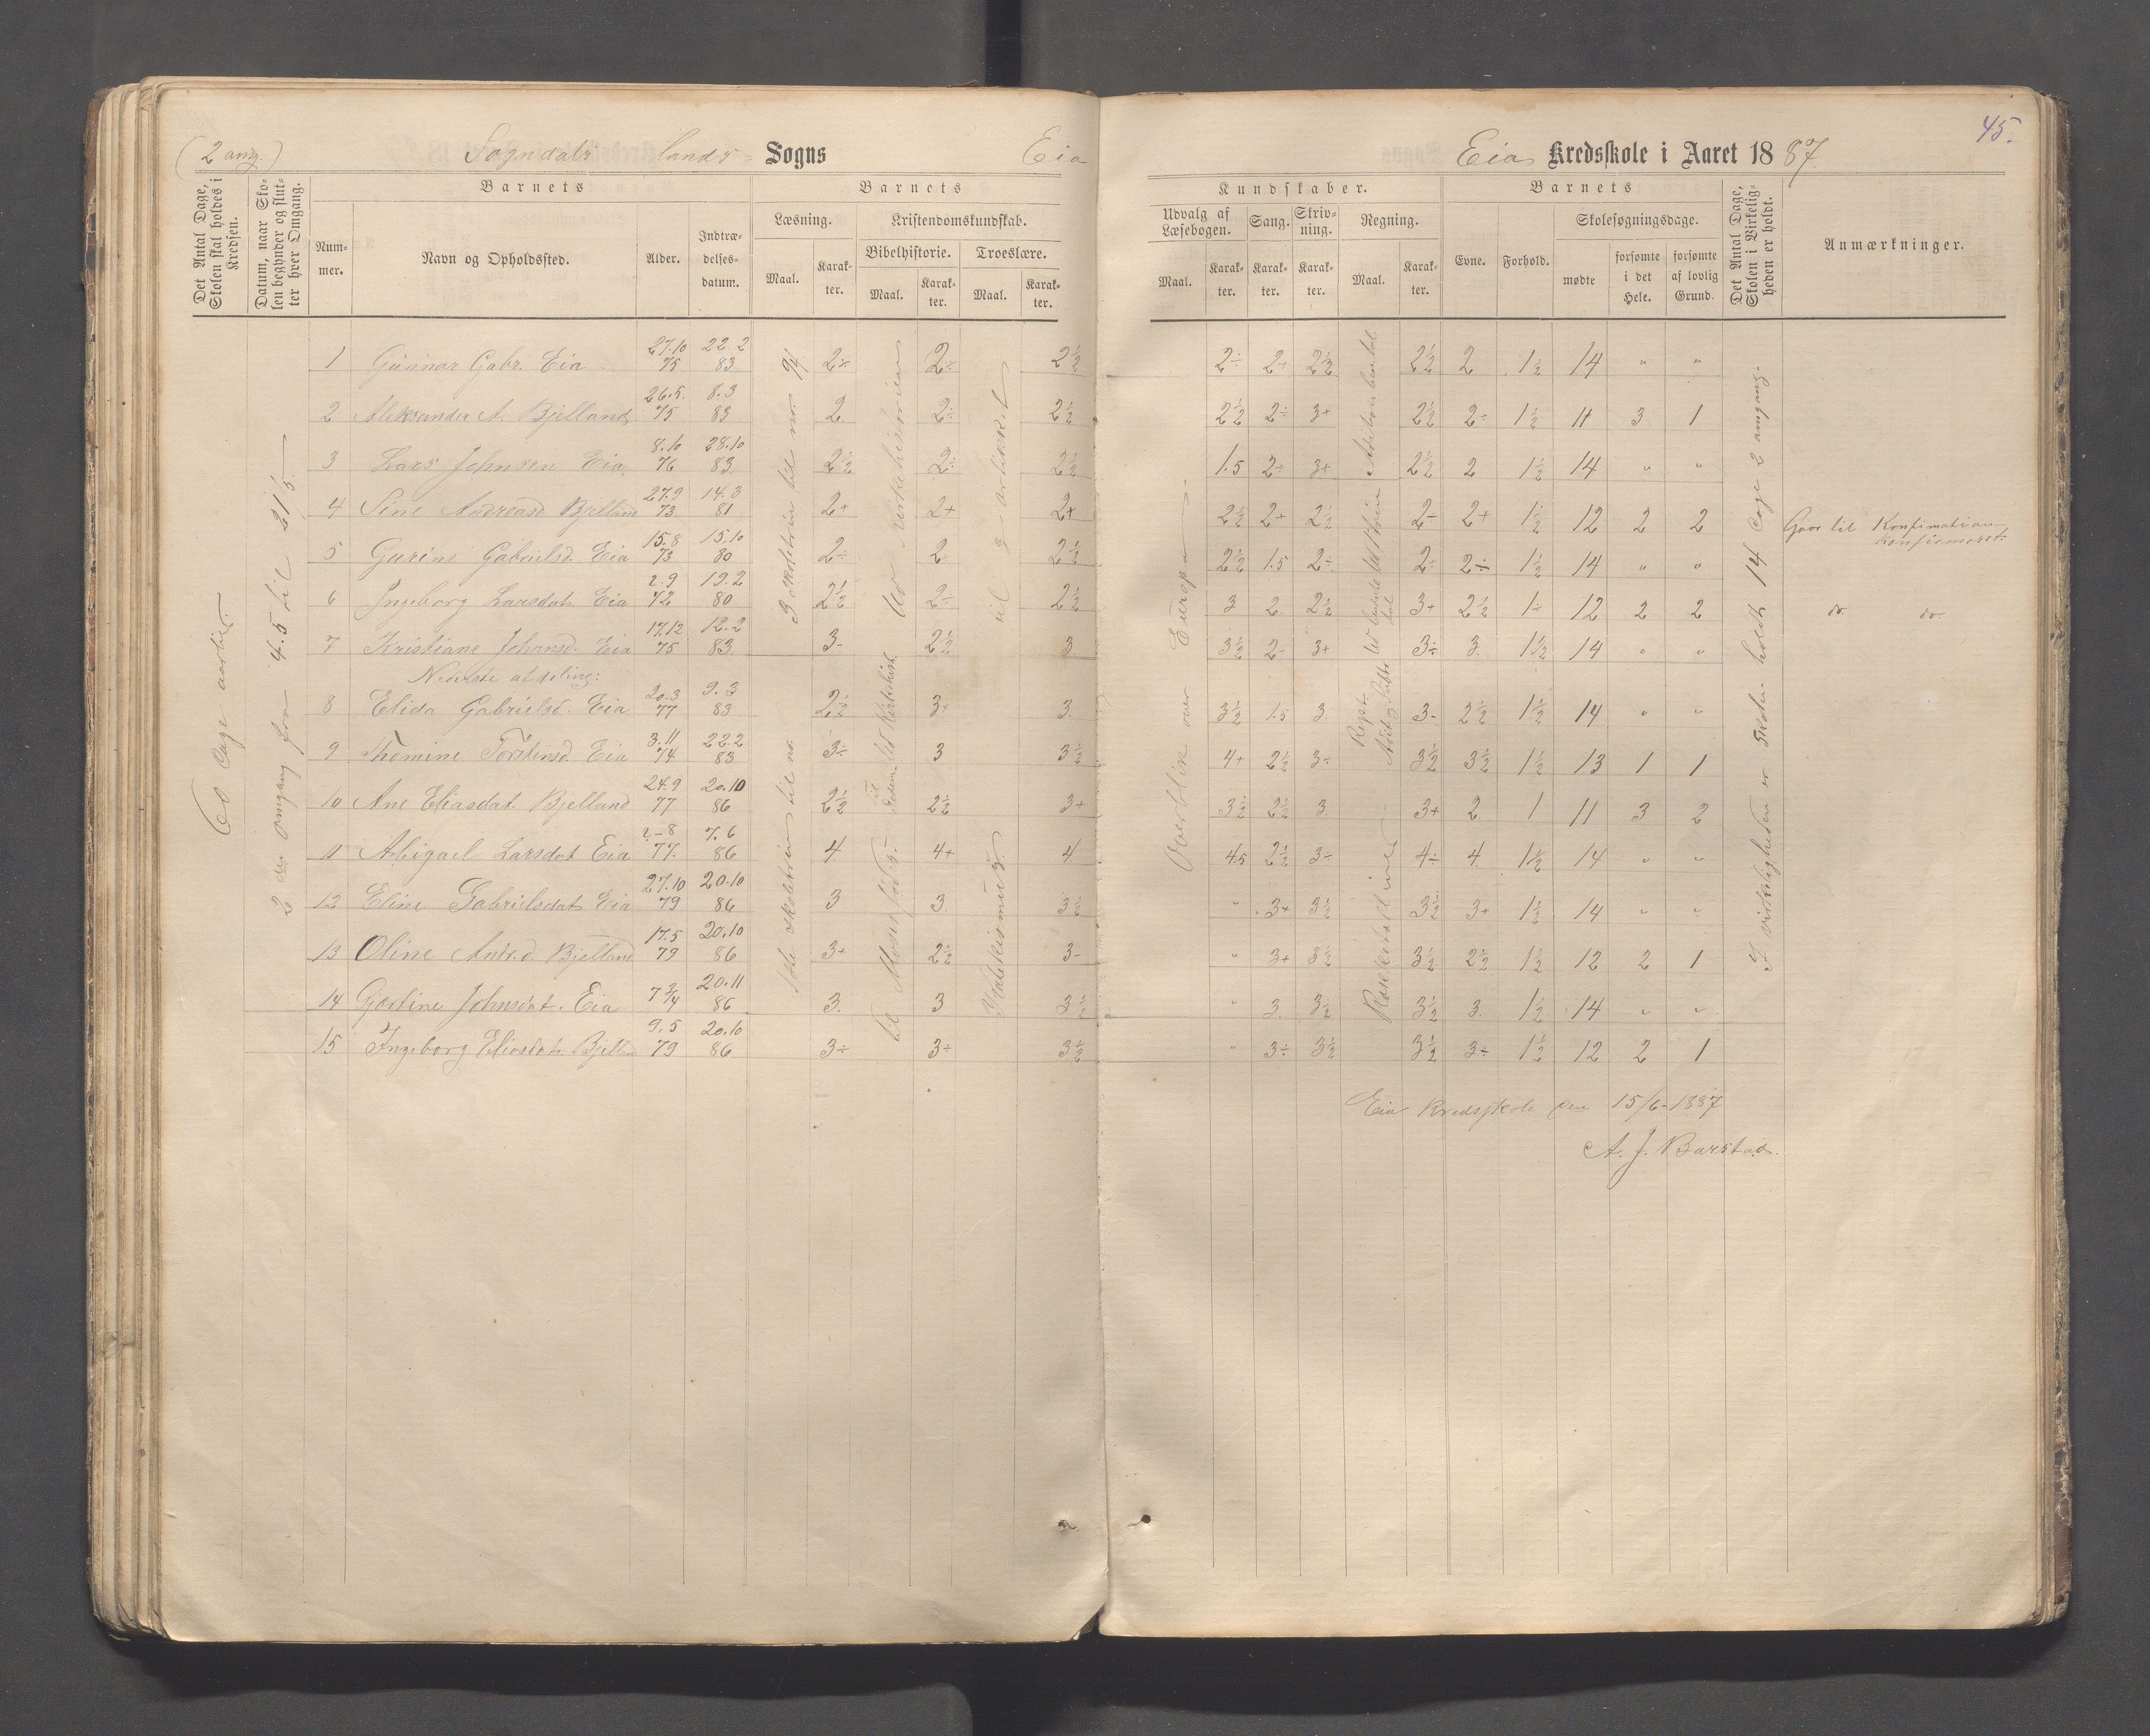 45.
(2 omg.) Sogndals Lands Sogns Eia
Eia Kredsskole i Aaret 1887.
Det Antal Dage, Skolen skal holdes i Kredsen.
Datum, naar Skolen begynder og slutter hver Omgang.
Barnets
Nummer.
Navn og Opholdssted.
Alder.
Indtrædelsesdatum.
Barnets
Læsning.
Maal.
Karakter.
Kristendomskundskab.
Bibelhistorie.
Maal.
Karakter.
Troeslære.
Maal.
Karakter.
Kundskaber.
Udvalg af Læsebogen.
Maal.
Karakter.
Sang.
Karakter.
Skrivning.
Karakter.
Regning.
Maal.
Karakter.
Barnets
Evne.
Forhold.
Skolesøgningsdage.
mødte
forsømte i det Hele.
forsømte af lovlig Grund.
Det Antal Dage, Skolen i Virkeligheden er holdt.
Anmærkninger.
60 Dage aarlig.
2den Omgang fra 4.5 til 21/5.
1 Gunnar Gabr. Eia 27.10 75 22.2 83 2÷ 2÷ 2½ 2÷ 2+ 2½ 2½ 2 1½ 14 " "
2 Aleksander A. Bjelland 26.5. 75 8.3 83 2 2÷ 2½ 2½ 2÷ 3+ 2½ 2÷ 1½ 11 3 1
3 Lars Johnsen Eia 8.10 76 28.10 83 2½ 2÷ 2½ 1.5 2÷ 3+ 2½ 2 1½ 14 " "
4 Sine Andreasd Bjelland 27.9 73 14.3 81 2+ 2+ 2+ 2½ 2+ 2½ 2÷ 2+ 1½ 12 2 2 Gaar til Konfirmation
5 Gurine Gabrielsd. Eia 15.8 73 15.10 80 2÷ 2 2½ 2½ 1.5 2÷ 2÷ 2÷ 1½ 14 " "
6 Ingeborg Larsdat. Eia 2.9 72 19.2 80 2½ 2÷ 2½ 3 2 2½ 3+ 2½ 1÷ 12 2 2 do. do.
7 Kristiane Johansd. Eia 17.12 75 12.2 83 3- 2½ 3 3½ 2÷ 3+ 3÷ 3. 1½ 14 " "
Nederste afdeling:
8 Elida Gabrielsd. Eia 20.3 77 9.3 83 2½ 3+ 3. 3½ 1.5 3. 3- 2½ 1½ 14 " "
9 Thomine Torstensd Eia 3.11 74 22.2 83 3÷ 3 3½ 4+ 2½ 3÷ 3½ 3½ 1½ 13 1 1
10 Ane Eliasdat. Bjelland 24.9 77 20.10 86 2½ 2½ 3+ 3½ 2½ 3 3+ 2 1 11 3 2
11 Abigael Larsdat Eia 2-8 77. 7.6 86 4 4+ 4 4.5 2½ 3÷ 4÷ 4 1½ 14 " "
12 Eline Gabrielsdat Eia 27.10 79 20.10 86 3 3 3½ " 3+ 3½ 3½ 3+ 1½ 14 " "
13 Oline Andr.d Bjelland 17.5 79 20.10 86 3+ 2½ 3- " 3+ 3½ 3½ 2½ 1½ 12 2 1
14 Gartine Johnsdat. Eia 7¾ 20.11 86 3. 3 3½ " 3. 3½ 3½ 3. 1½ 14 " "
15 Ingeborg Eliasdat. Bjelland 9.5 79 20.10 86 3÷ 3÷ 3½ " 3÷ 3½ 3½ 3÷ 1½ 12 2 1
til 3 artikkel
Katekismus
Overblik over Europa.
I virkeligheden er skolen holdt 14 Dage 2 omgang.
Eia Kredsskole den 15/6-1887
A. J. Barstad.